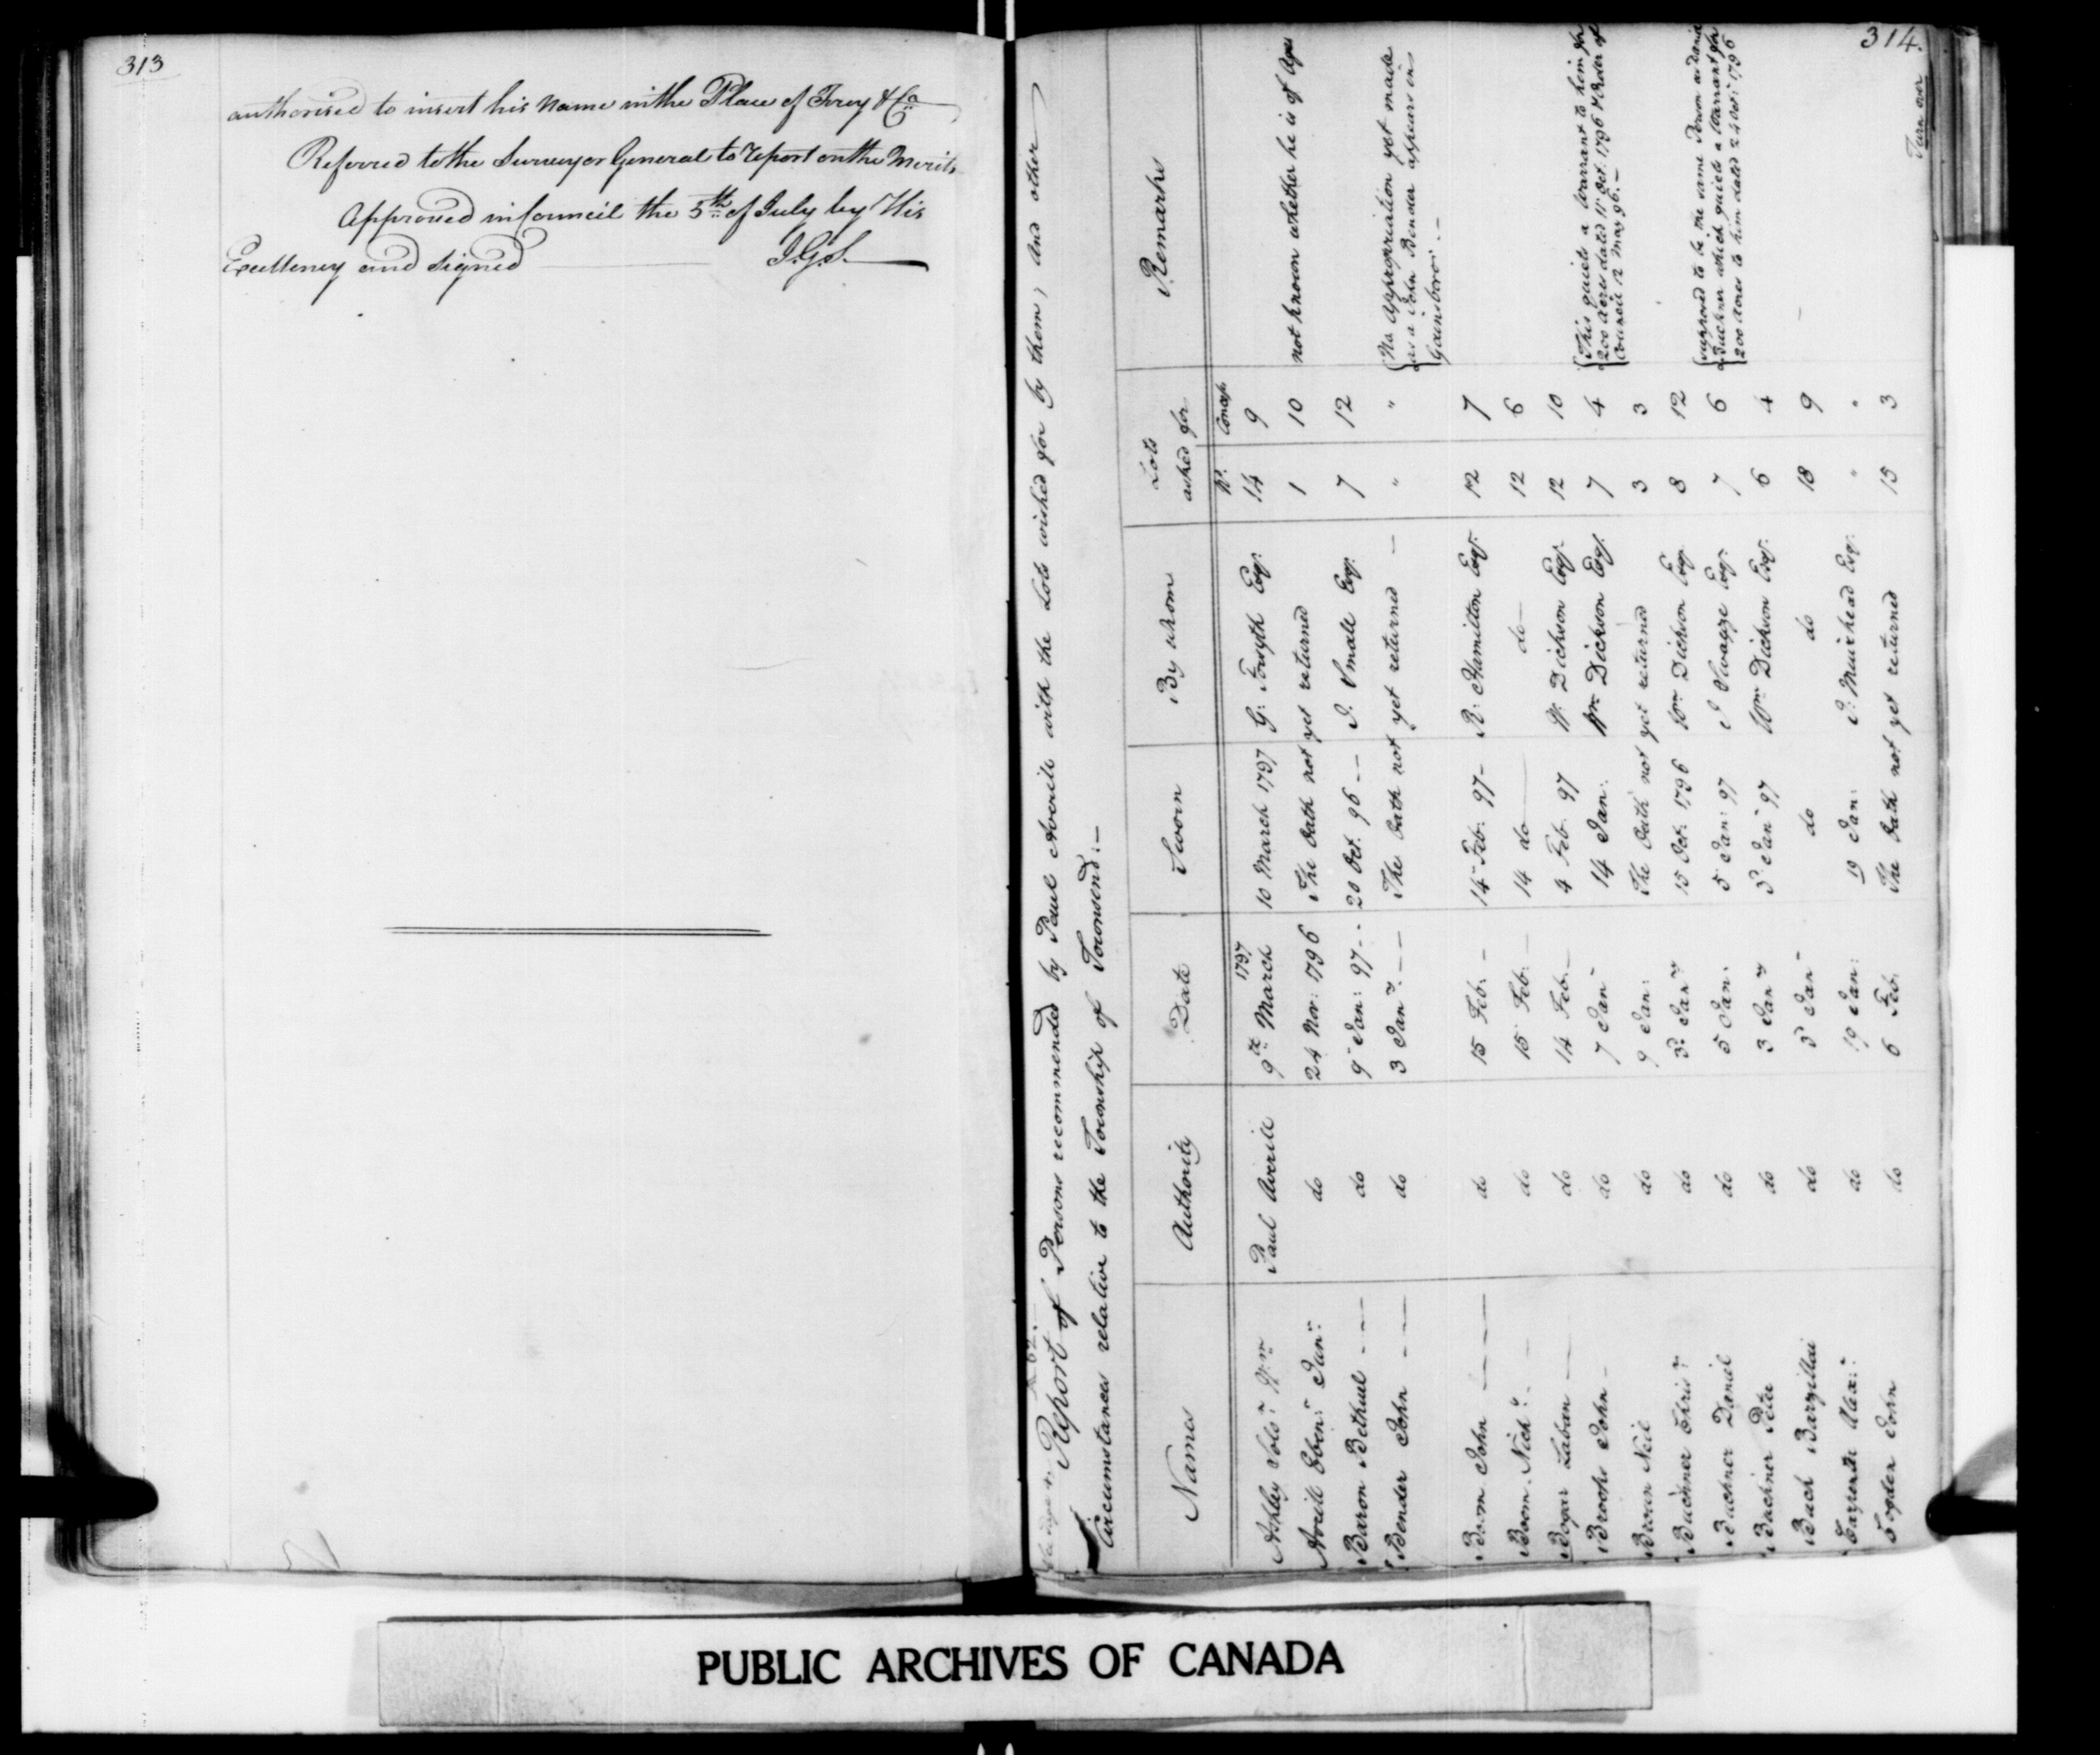 313
authorised to insert his Name in the Place of Torey & Co
Referred to the Surveyor General to report on the Merits
Approved in Council the 5th of July by His
Excellency and Signed J.G.S.
314.
Report of Persons recommended by Paul Averill with the Lots wished for by them, and other
Circumstances relative to the Township of Townsend:—
Names Authority Date Sworn By whom Lots asked for Remarks
No. Concess.
Ashley Solon Wm Paul Averill 9th March 1797 10 March 1797 G: Forsyth Esqr. 14 9
Averill Eben: Jun: do 24 Nov: 1796 The Oath not yet returned 1 10 not known whether he is of Age
Baron Bethuel do 9 Jan: 97 20 Oct. 96 J. Small Esqr. 7 12
Bender John do 3 Jany. The Oath not yet returned " " {No Appropriation yet made
as a John Bender appears in
Gainsboro:—
Boom John do 15 Feb: 14 Feb: 97 R: Hamilton Esqr. 12 7
Boom Nichs. do 15 Feb: 14 do do 12 6
Bogar Laban do 14 Feb: 4 Feb. 97 W. Dickson Esqr. 12 10
Brooks John do 7 Jan 14 Jan: Wm Dickson Esqr. 7 4 {This quiets a Warrant to him for
200 acres dated 11 Oct. 1796 & Order of
Council 12 May 96.—
Brown Neil do 9 Jan: The Oath not yet returned 3 3
Buchner Chrisr. do 3d Jany 15 Oct. 1796 Wm Dickson Esqr. 8 12
Buchner Daniel do 5 Jan: 5 Jan: 97 J Swayze Esqr. 7 6 {supposed to be the same Person as Daniel
Buchner which quiets a Warrant for
200 acres to him dated 24 Oct: 1796
Buchner Peter do 3 Jany 3d Jany 97 Wm Dickson Esqr. 6 4
Buck Barzillai do 3d Jany do do 18 9
do 19 Jan: 19 Jan: J: Muirhead Esqr. " "
John do 6 Feb: The Oath not yet returned 15 3
Turn over
PUBLIC ARCHIVES OF CANADA